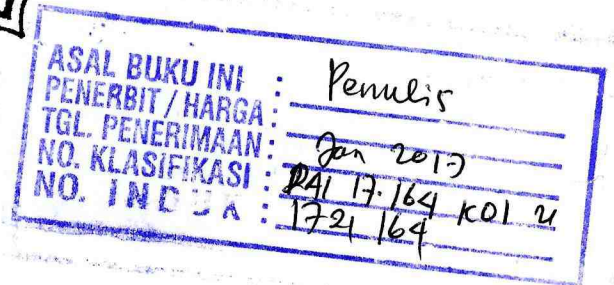 ASAL BUKU INI : Penulis
PENERBIT / HARGA :
TGL. PENERIMAAN : Jan 2017
NO. KLASIFIKASI : RAI 17.164 KOI u
NO. INDUK : 1721 164